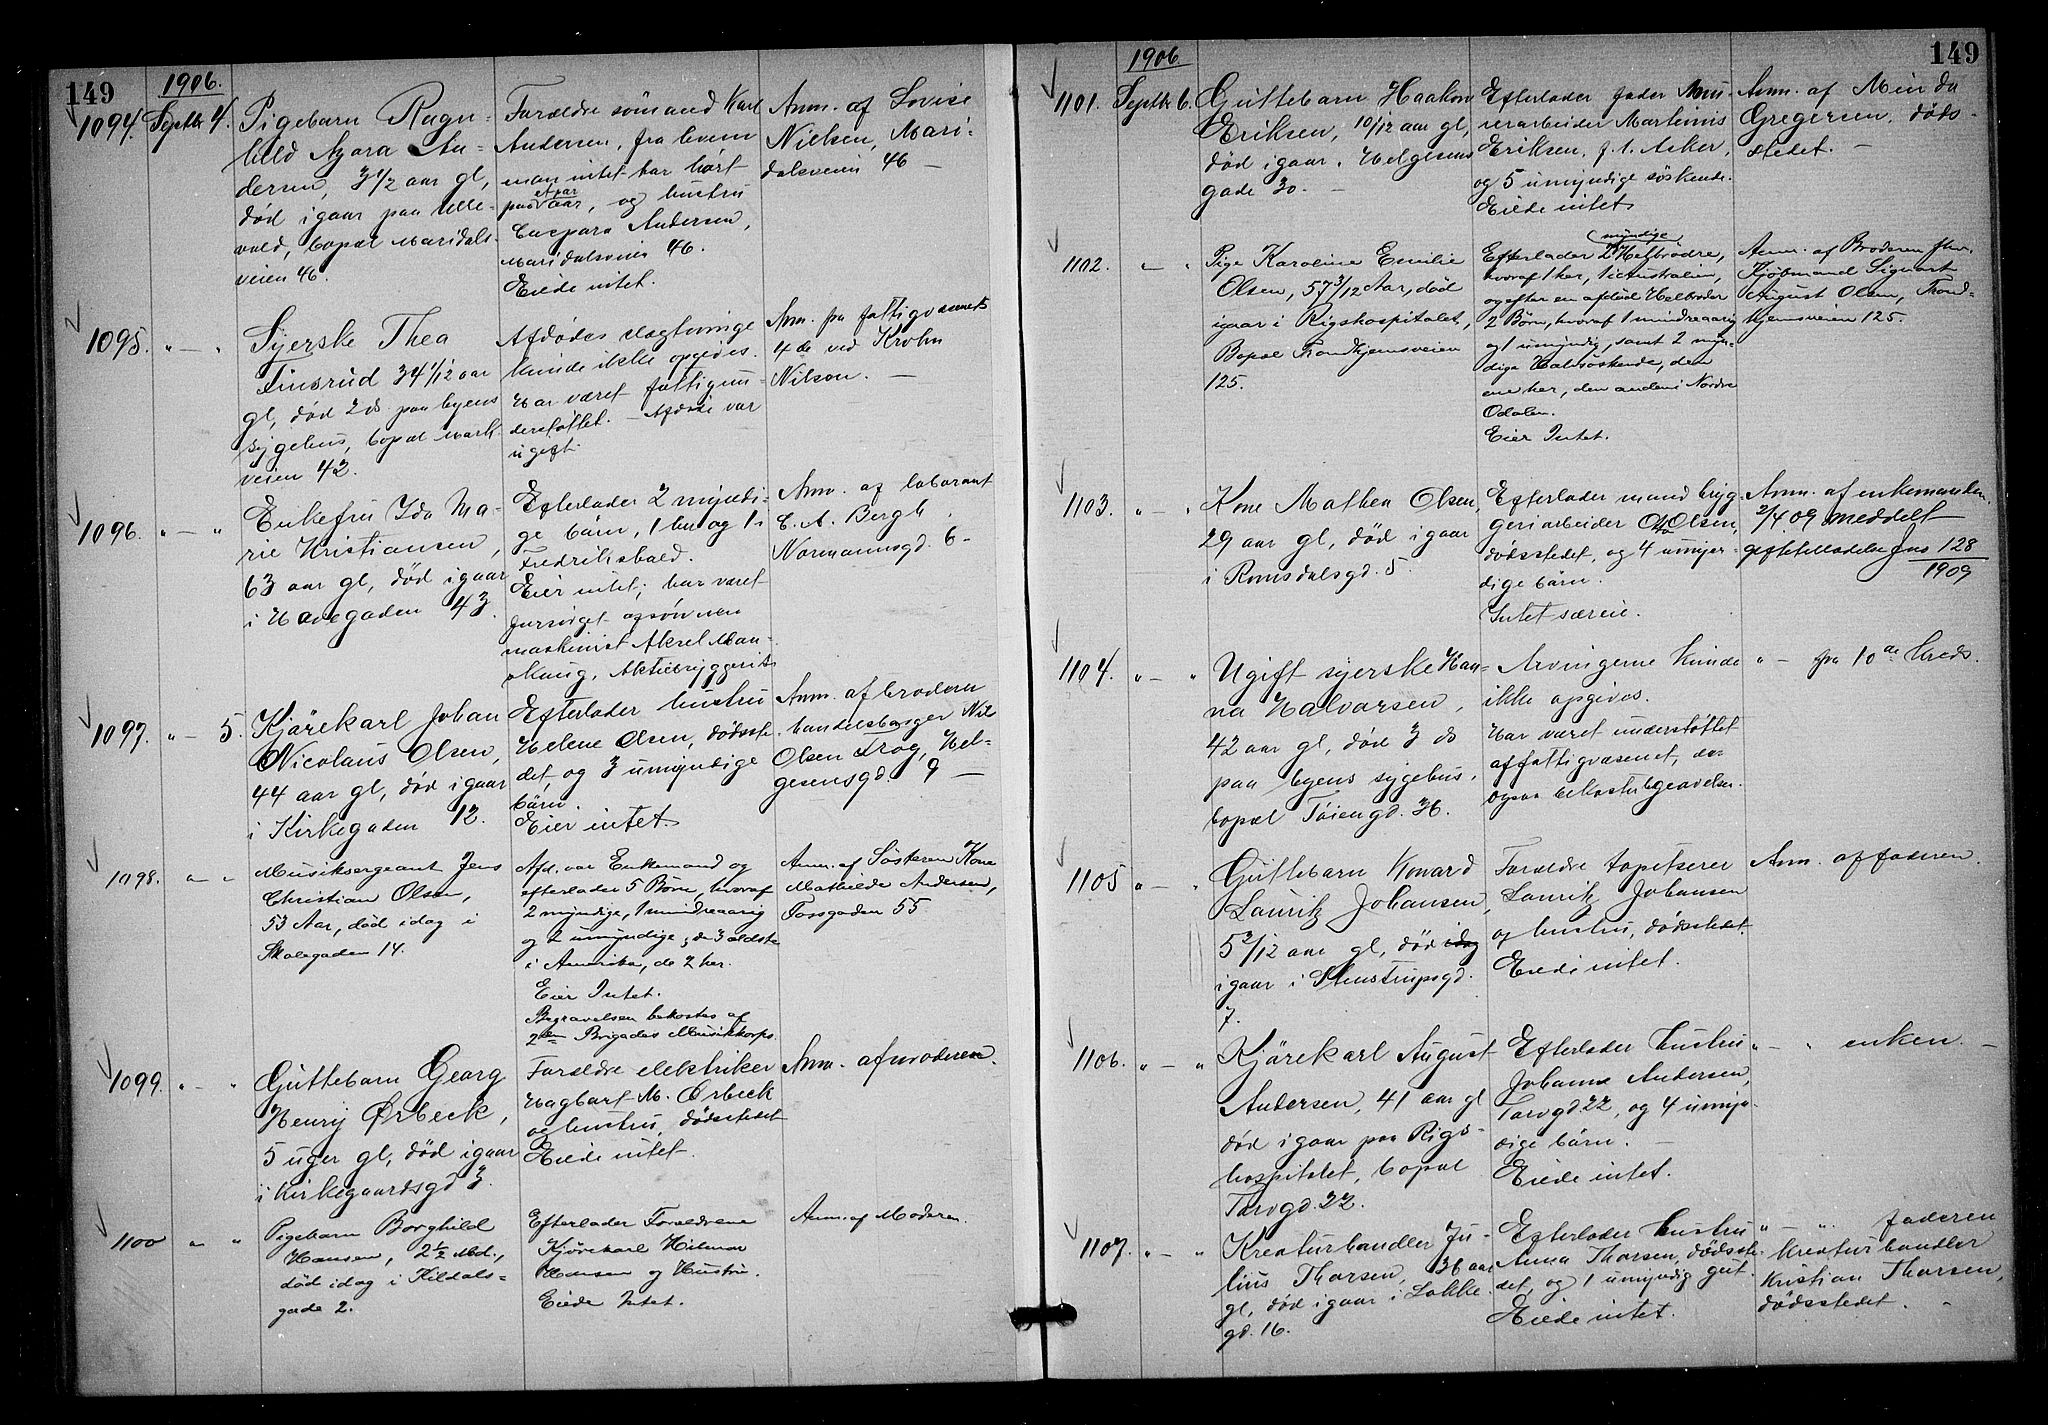 149
1906.
1094. Septbr 4.
Pigebarn Ragn-
hild Azora An-
dersen, 3 1/2 aar gl,
død igaar paa Ulle-
vold, bopæl Maridals-
veien 46.
Forældre sømand Karl
Andersen, fra hvem
man intet har hørt
paa et par aar, og hustru
Caspara Andersen,
Maridalsveien 46.
Eiede intet.
Anm. af Lovise
Nielsen, Mari-
dalsveien 46 -
1095. " - "
Syerske Thea
Finsrud 34 1/12 aar
gl, død 2 ds paa byens
sygehus, bopæl Mark-
veien 42.
Afdødes slægtninge
kunde ikke opgives.
Har været fattigun-
derstøttet. - Afdøde var
ugift
Anm. fra fattigvæsenets
4de ved Krohn
Nilson. -
1096. " - "
Enkefru Ida Ma-
rie Kristiansen,
63 aar gl, død igaar
i Havegaden 43.
Efterlader 2 myndi-
ge børn, 1 her og 1 i
Fredrikshald.
Eier intet; har været
forsørget af søn
maskinist Aksel
Aktiebryggeriet
Anm. af laborant
C. A. Bergh
Normannsgd. 6 -
1097. " - 5.
Kjørekarl Johan
Nicolaus Olsen,
44 aar gl, død igaar
i Kirkegaden 12.
Efterlader hustru
Helene Olsen, dødsste-
det, og 3 umyndige
børn.
Eier intet.
Anm. af broderen
handelsborger Nils
Olsen Trog, Hel-
gesensgd. 9 -
1098. " - "
Musiksergeant Jens
Christian Olsen,
53 Aar, død idag i
Skolegaden 14.
Afd. var Enkemand og
efterlader 5 Børn, hvoraf
2 myndige, 1 mindreaarig
og 2 umyndige; de 3 ældste
i Amerika, de 2 her.
Eier Intet.
Begravelsen bekostes af
2den Brigades Musikkorps.
Anm. af Søsteren Kone
Mathilde Andersen,
Fossgaden 55
1099. " - "
Guttebarn Georg
Henry Ørbeck,
5 uger gl, død igaar
i Kirkegaardsgd 3.
Forældre elektriker
Hagbart M. Ørbeck
og hustru, dødsstedet
Eiede intet.
Anm. af moderen.
1100 " "
Pigebarn Borghild
Hansen, 2 1/2 Md.,
død idag i Kildals-
gade 2.
Efterlader Forældrene
Kjørekarl Hilmar
Hansen og Hustru.
Eiede Intet.
Anm. af Moderen.
149
1906
1101. Septbr 6.
Guttebarn Haakon
Eriksen, 10/12 aar gl,
død igaar. Helgesens
gade 30. -
Efterlader fader Mu-
rerarbeider Martinius
Eriksen, f. t. Asker,
og 5 umyndige søskende.
Eiede intet
Anm. af Minda
Gregersen, døds-
stedet. -
1102. " - "
Pige Karoline Emilie
Olsen, 57 3/12 Aar, død
igaar i Rigshospitalet,
Bopæl Trondhjemsveien
125.
Efterlader 2 myndige Helbrødre,
hvoraf 1 her, 1 i Australien,
og efter en afdød Helbroder
2 Børn, hvoraf 1 mindreaarig
og 1 umyndig, samt 2 myn-
dige Halvsøskende, den
ene her, den anden i Nordre
Odalen.
Eier Intet.
Anm. af Broderen fhv.
Kjøbmand Sigvart
August Olsen, Trond-
hjemsveien 125.
1103. " - "
Kone Mathea Olsen,
29 aar gl, død igaar
i Romsdalsgd. 5
Efterlader mand bryg-
geriarbeider Otto Olsen,
dødsstedet, og 4 umyn-
dige børn.
Intet særeie.
Anm. af enkemanden.
2/4 09 meddelt
giftetilladelse Jno 128
1909
1104. " - "
Ugift syerske Han-
na Halvorsen,
42 aar gl, død 3 ds
paa byens sygehus,
bopæl Tøiengd. 36.
Arvingerne kunde
ikke opgives.
Har været understøttet
af fattigvæsenet, der
ogsaa bekoster begravelsen.
" - fra 10de kreds.
1105 " - "
Guttebarn Konard
Lauritz Johansen,
5 3/12 aar gl, død idag
igaar i Stenstrupsgd.
7.
Forældre tapetserer
Lauritz Johansen
og hustru, dødsstedet.
Eiede intet.
Anm. af faderen.
1106. " - "
Kjørekarl August
Andersen, 41 aar gl
død igaar paa Rigs-
hospitalet, bopæl
Torvgd. 22.
Efterlader hustru
Johanne Andersen,
Torvgd 22, og 4 umyn-
dige børn. -
Eiede intet.
" - " enken. -
1107. " - "
Kreaturhandler Ju-
lius Thorsen, 36 aar
gl, død igaar i Løkke-
gd. 16.
Efterlader hustru
Anna Thorsen, dødsste-
det, og 1 umyndig gut.
Eiede intet.
" - " faderen
kreaturhandler
Kristian Thorsen,
dødsstedet. -